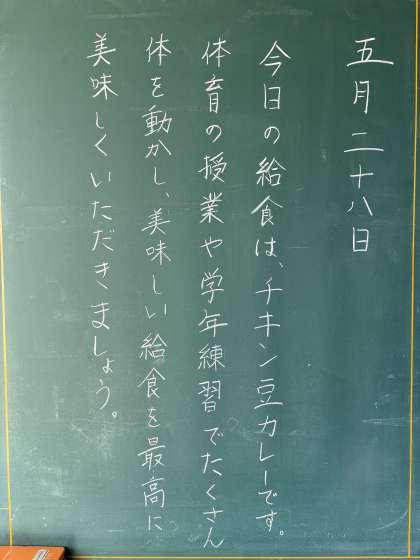 五月二十八日
今日の給食は、チキン豆カレーです。
体育の授業や学年練習でたくさん
体を動かし、美味しい給食を最高に
美味しくいただきましょう。